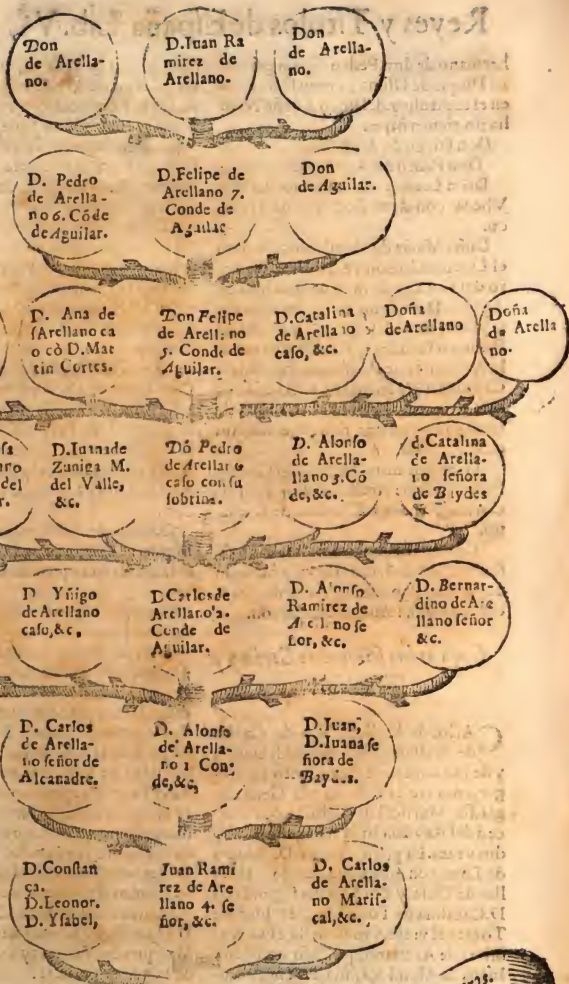 Don
de Arella-
no.
D.Iuan Ra
mirez de
Arellano.
Don
de Arella-
no.
D. Pedro
de Arella-
no 6. Códe
de Aguilar.
D.Felipe de
Arellano 7.
Conde de
Aguilar
Don
de Aguilar.
D. Ana de
Arellano ca
o cò D.Mar
tin Cortes.
Don Felipe
de Arellano
5. Conde de
Aguilar.
D.Catalina
de Arellano
caso, &c.
Doña
de Arellano
Doña
de Arella
no.
D.Iuana de
Zuniga M.
del Valle,
&c.
Dó Pedro
de Arellano
caso con su
sobrina.
D. Alonso
de Arella-
llano 3.Có
de, &c.
d.Catalina
de Arella-
no señora
de Baydes
D. Yñigo
de Arellano
caso, &c.
D.Carlos de
Arellano 2.
Conde de
Aguilar.
D. Alonso
Ramirez de
Arellano se
ñor, &c.
D. Bernar-
dino de Are
llano señor
&c.
D. Carlos
de Arella-
no señor de
Alcanadre.
D. Alonso
de Arella-
no 1 Con-
de, &c,
D.Iuan,
D.Iuana se
ñora de
Baydes.
D.Constan
ça.
D.Leonor.
D. Ysabel,
Iuan Rami
rez de Are
llano 4. se
ñor, &c.
D. Carlos
de Arella-
no Maris-
cal, &c.